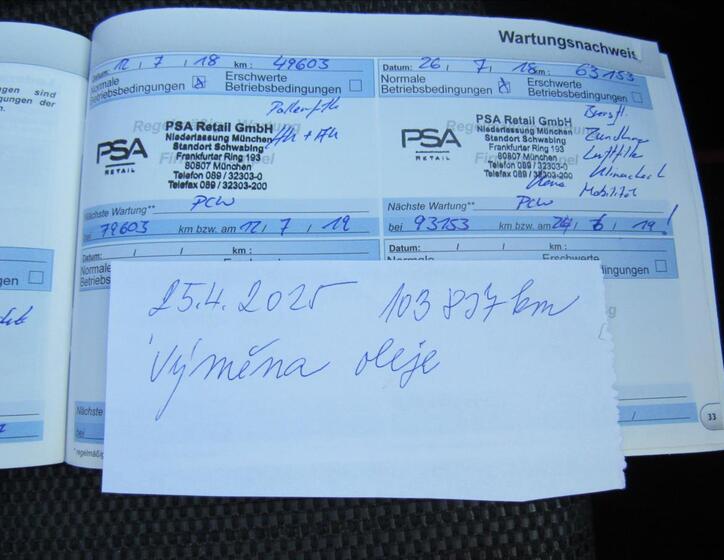 Wartungsnachweis
Datum: 12 / 7 / 18 km : 49603
Normale Betriebsbedingungen
Erschwerte Betriebsbedingungen
Pollenfilter
PSA Retail GmbH
Niederlassung München
Standort Schwabing
Frankfurter Ring 193
80807 München
Telefon 089 / 32303-0
Telefax 089 / 32303-200
PSA
RETAIL
Nächste Wartung** PCW
bei 79603 km bzw. am 12 / 7 / 19
Datum: / / km :
Datum: 26 / 7 / 18 km : 63153
Normale Betriebsbedingungen
Erschwerte Betriebsbedingungen
PSA Retail GmbH
Niederlassung München
Standort Schwabing
Frankfurter Ring 193
80807 München
Telefon 089 / 32303-0
Telefax 089 / 32303-200
PSA
RETAIL
Luftfilter
Mobilität
Nächste Wartung** PCW
bei 93153 km bzw. am / 19 !
Datum: / / km :
Normale
Erschwerte
25.4.2025 103 837 km
Výměna oleje
Nächste
33